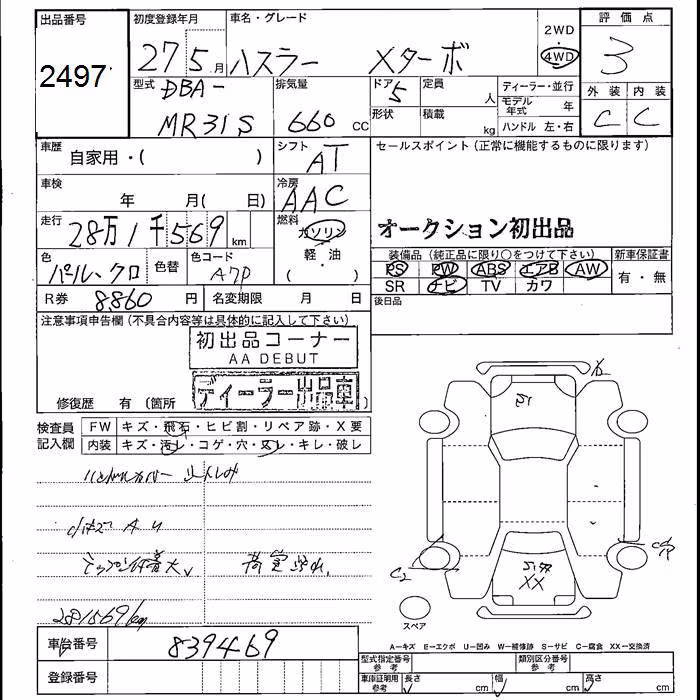 出品番号
2497
初度登録年月
27 5月
車名・グレード
ハスラー Xターボ
2WD
・
4WD
評価点
3
型式
DBA-
MR31S
排気量
660 CC
ドア
5
形状
定員
人
積載
kg
ディーラー・並行
モデル年式 年
ハンドル 左・右
外装
C
内装
C
車歴
自家用・( )
シフト
AT
セールスポイント(正常に機能するものに限ります)
車検
年 月( 日)
冷房
AAC
走行
28万1千569 km
燃料
ガソリン
・
軽油
( )
オークション初出品
色
パール、クロ
色替
色コード
A7P
装備品(純正品に限り○をつけて下さい)
PS PW ABS エアB AW
SR ナビ TV カワ
新車保証書
有・無
R券 8860 円
名変期限 月 日
後日品
注意事項申告欄(不具合内容等は具体的に記入して下さい)
初出品コーナー
AA DEBUT
ディーラー出品車
修復歴 有(箇所 )
検査員
記入欄
FW キズ・飛石・ヒビ割・リペア跡・X要
内装 キズ・汚レ・コゲ・穴・スレ・キレ・破レ
281569km
XX
C2
スペア
A=キズ E=エクボ U=凹み W=補修跡 S=サビ C=腐食 XX=交換済
車台番号 839469
登録番号
型式指定番号
参考
類別区分番号
参考
車庫証明用
参考
長さ cm 幅 cm 高さ cm